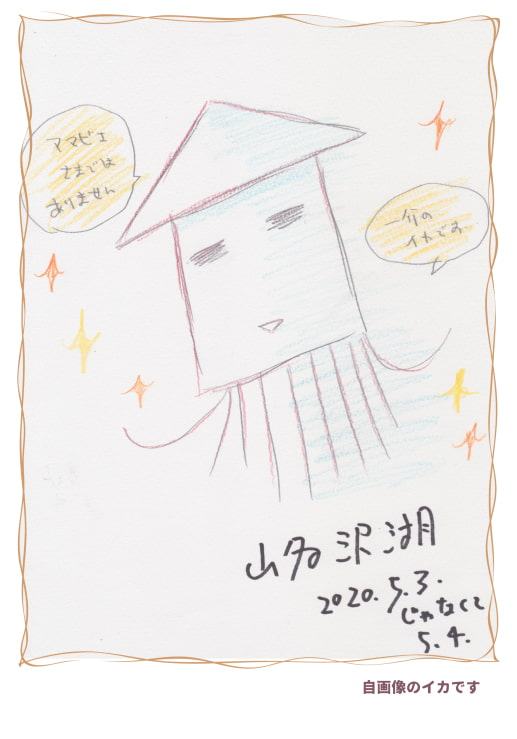 アマビエ
さまでは
ありません
一介の
イカです。
山名沢湖
2020. 5. 3.
じゃなくて
5. 4.
自画像のイカです